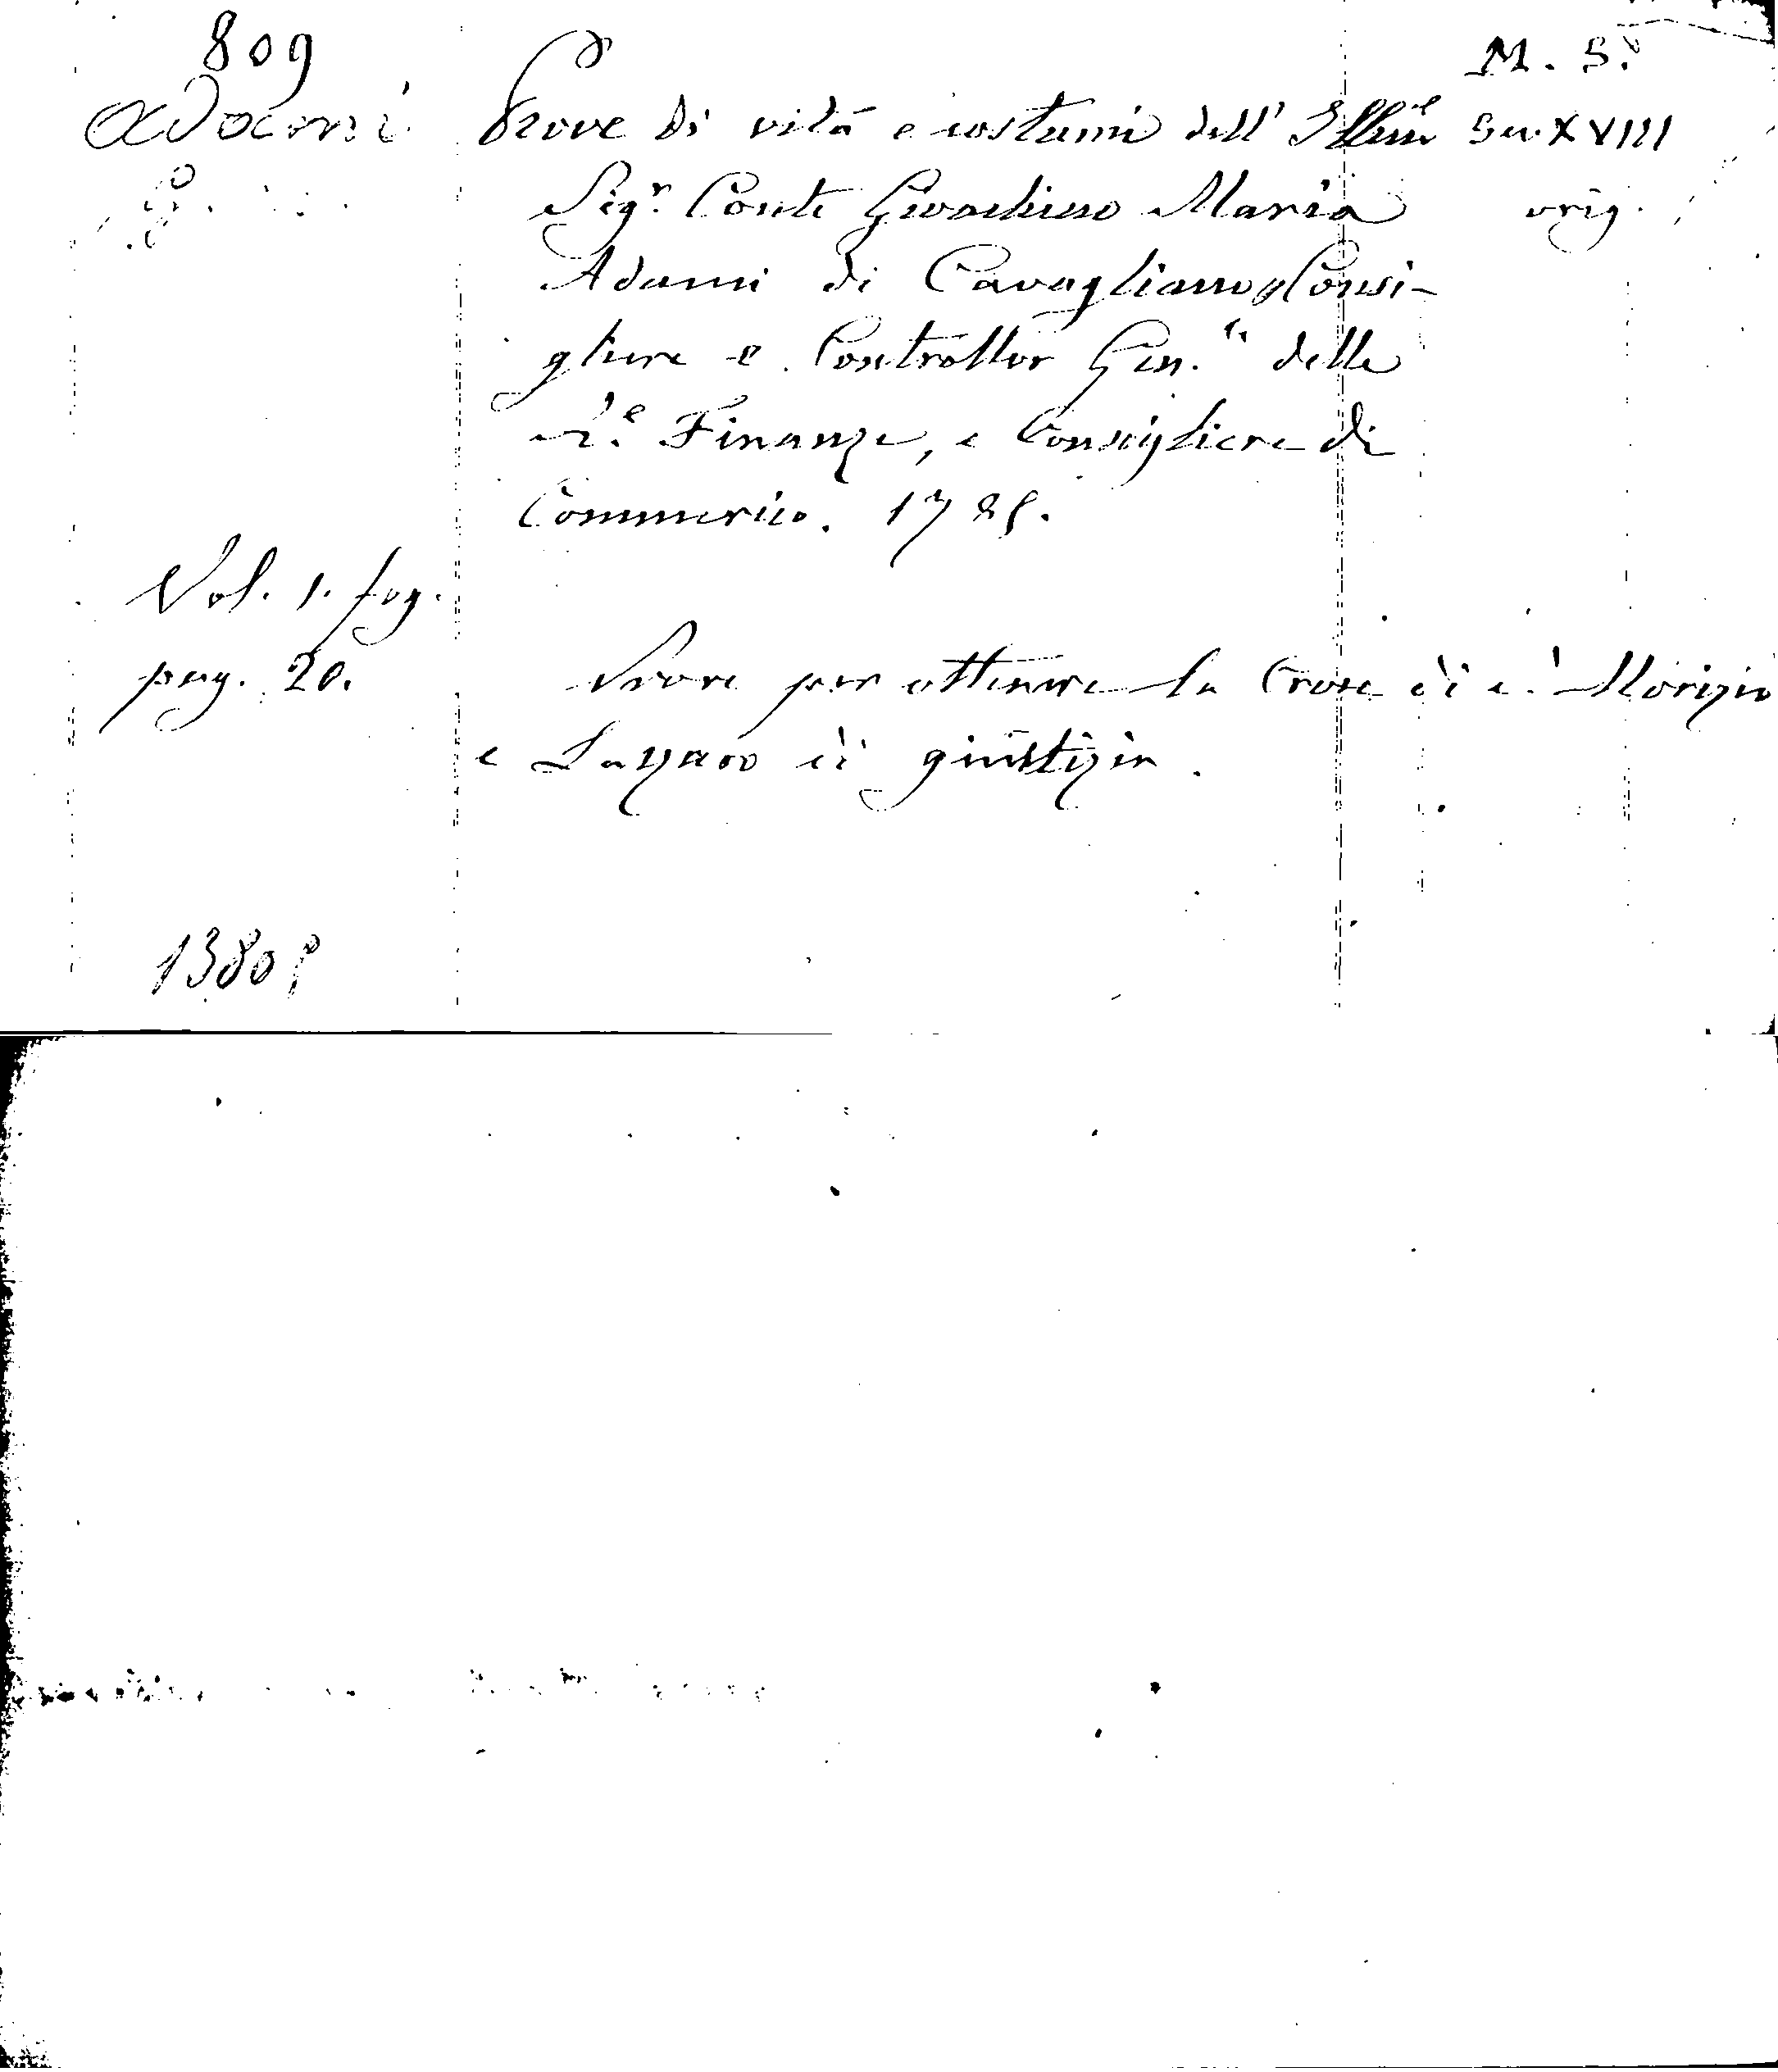 809
M. S.
Adami
Prove di vita e costumi dell' Ill.mo
Sec. XVIII
Sig.r Conte Gioachino Maria
orig.
Adami di Cavagliano Consi-
gliere e Controllor Gen.le delle
R.e Finanze, e Consigliere di
Commercio. 1728.
Vol. 1. fog.
pag. 20.
Prove per ottenere la Croce di S. Morizio
e Lazaro di giustizia.